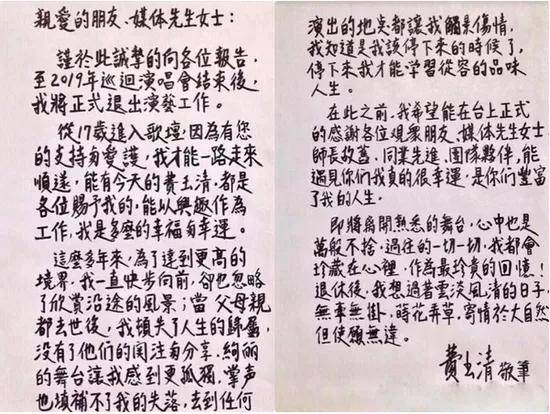 親愛的朋友、媒体先生女士：
謹於此誠摯的向各位報告，
至2019年巡迴演唱會結束後，
我將正式退出演藝工作。
從17歲進入歌壇，因為有您
的支持與愛護，我才能一路走來
順遂，能有今天的費玉清，都是
各位賜予我的，能以興趣作為
工作，我是多麼的幸福與幸運。
這麼多年來，為了達到更高的
境界，我一直快步向前，卻也忽略
了欣賞沿途的風景；當父母親
都去世後，我頓失了人生的歸屬，
沒有了他們的関注與分享，絢麗
的舞台讓我感到更孤獨，掌声
也填補不了我的失落，去到任何
演出的地点都讓我觸景傷情，
我知道是我該停下來的時候了，
停下來我才能学習從容的品味
人生。
在此之前，我希望能在台上正式
的感謝各位观衆朋友、媒体先生女士
師長故舊、同業先進、团隊夥伴，能
遇見你們我真的很幸運，是你們豐富
了我的人生。
即將离開熟悉的舞台，心中也是
萬般不捨，過往的一切一切，我都會
珍藏在心裡，作為最珍貴的回憶！
退休後，我想過著雲淡風清的日子，
無事無掛，時花弄草，寄情於大自然
但使願無違。
費玉清 敬筆